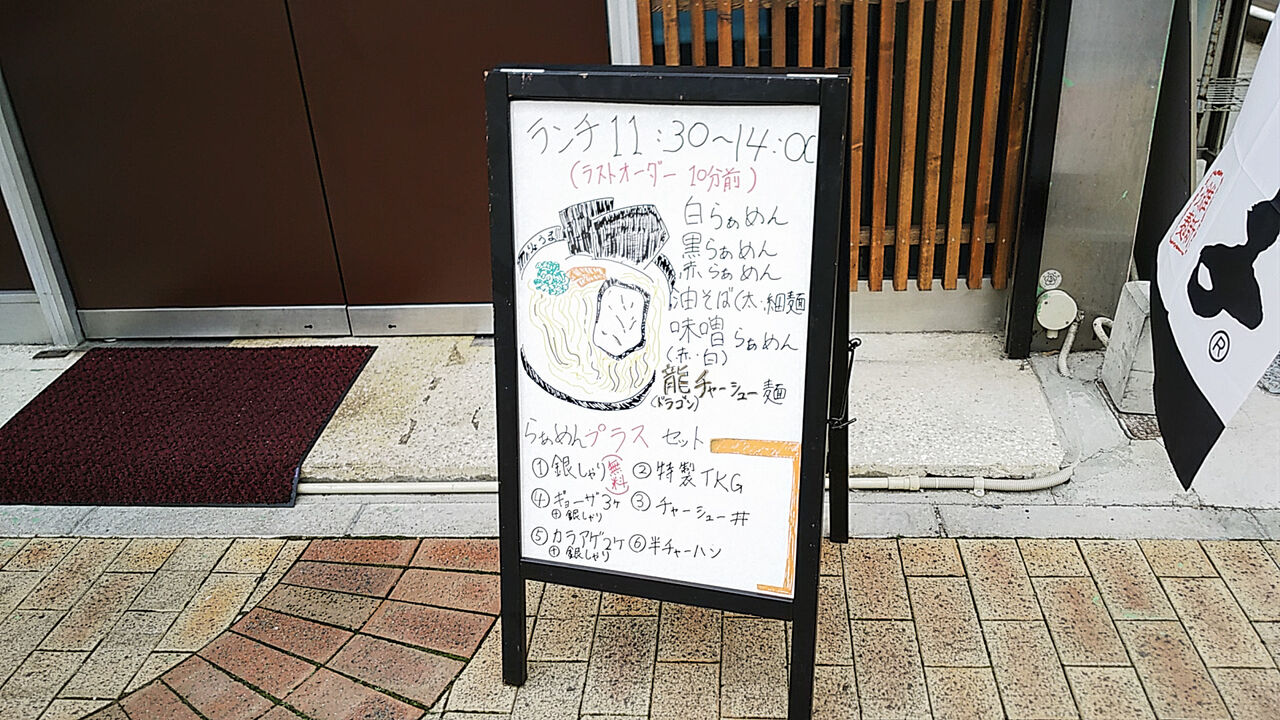 ランチ 11:30〜14:00
(ラストオーダー 10分前)
白らぁめん
黒らぁめん
赤らぁめん
油そば(太・細麺
味噌らぁめん
(赤・白)
龍チャーシュー麺
(ドラゴン)
らぁめんプラス セット
①銀しゃり 無料 ②特製TKG
④ギョーザ3ケ ③チャーシュー丼
田 銀しゃり
⑤カラアゲ2ケ ⑥半チャーハン
田 銀しゃり
®